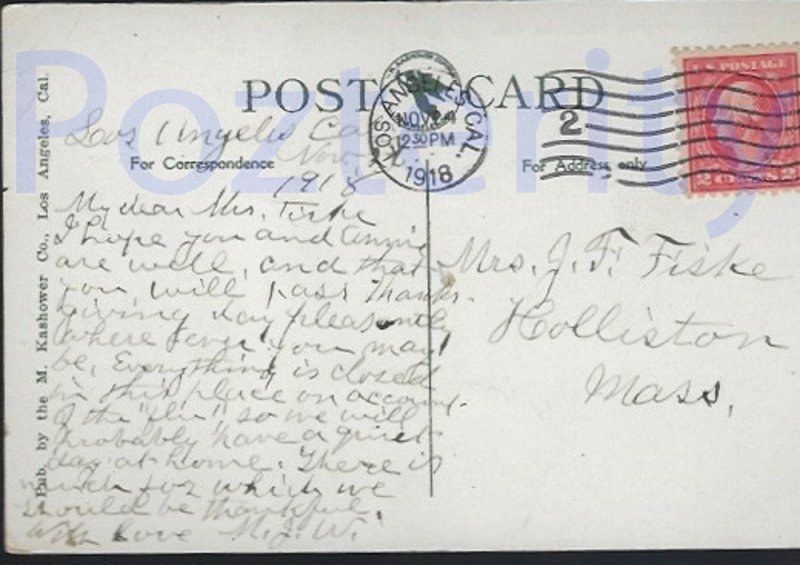 POST CARD
For Correspondence
For Address only
Pub. by the M. Kashower Co., Los Angeles, Cal.
LOS ANGELES, CAL.
NOV 24
12 30 PM
1918
2
U.S. POSTAGE
2 CENTS 2
Los Angeles Cal
Nov.
1918
My dear Mrs. Fiske
I hope you and Annie
are well, and that
you will pass Thanks-
giving day pleasantly
where ever you may
be. Everything is closed
in this place on account
of the "flu", so we will
probably have a quiet
day at home. There is
much for which we
should be thankful.
With love M. J. W.
Mrs. J. F. Fiske
Holliston
Mass.
Pozterity